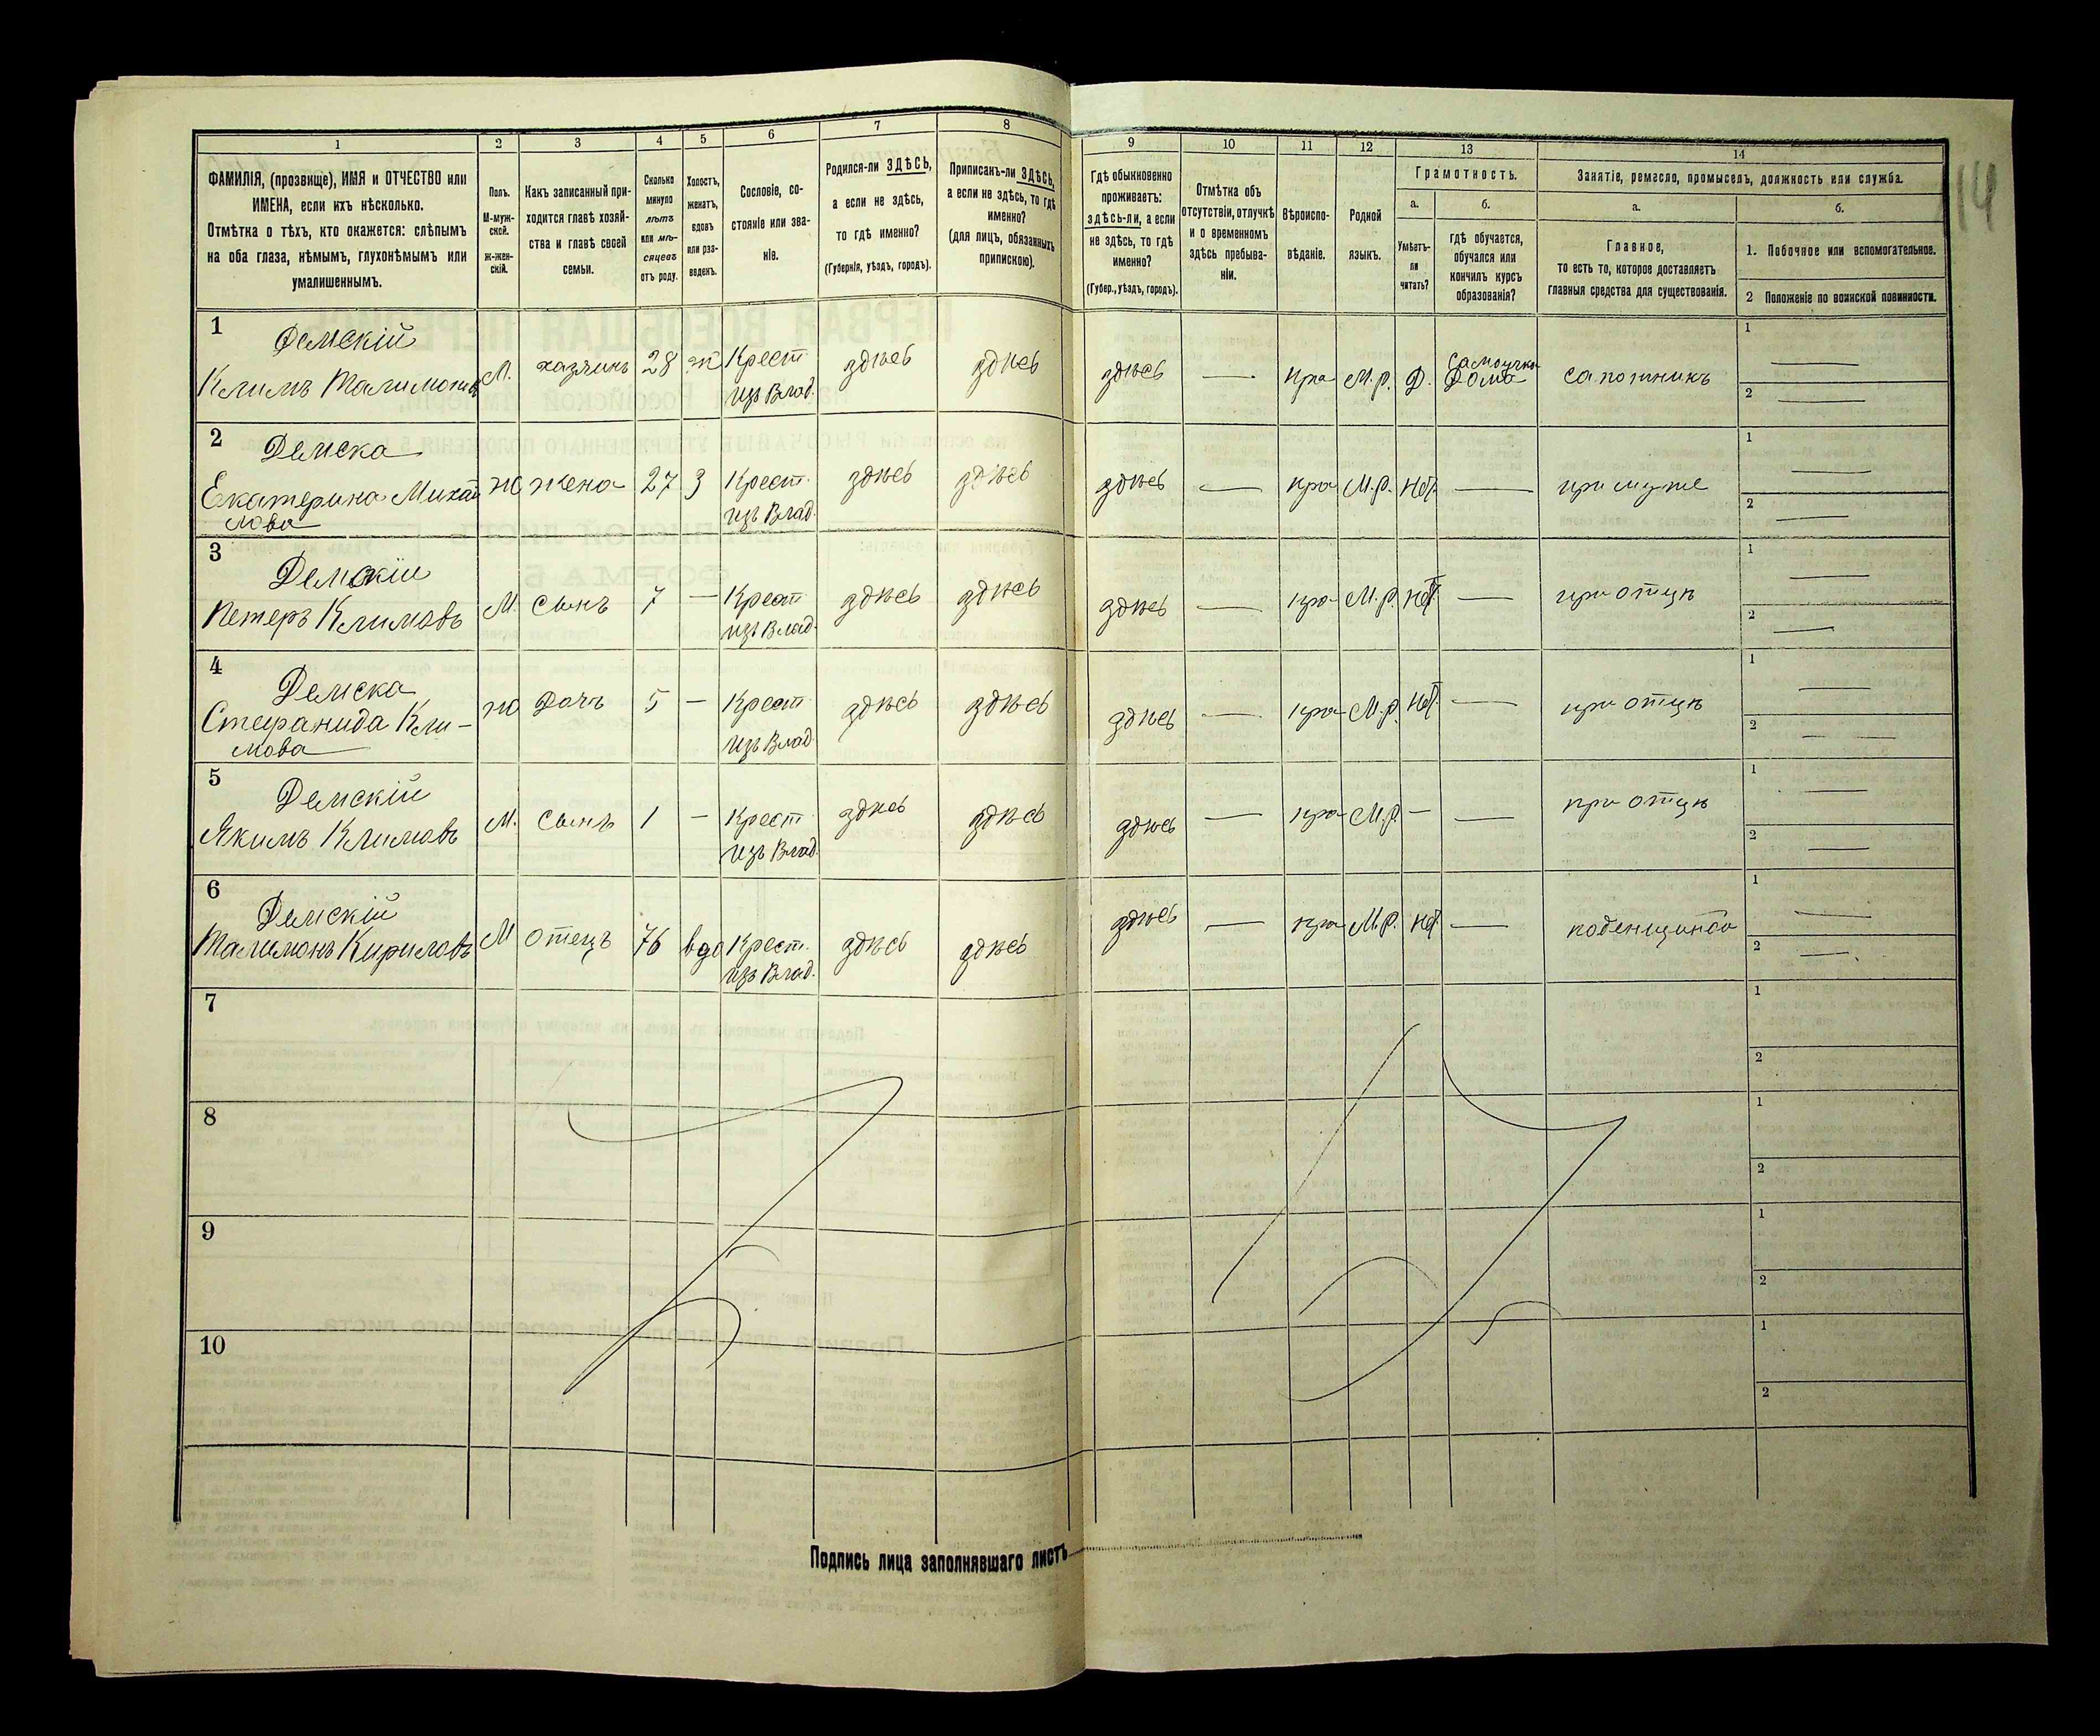 1 2 3 4 5 6 7 8 9 10 11 12 13 14
ФАМИЛІЯ, (прозвище), ИМЯ и ОТЧЕСТВО или
ИМЕНА, если ихъ нѣсколько.
Отмѣтка о тѣхъ, кто окажется: слѣпымъ
на оба глаза, нѣмымъ, глухонѣмымъ или
умалишеннымъ.
Полъ.
М-муж-
ской.
Ж-жен-
скій.
Какъ записанный при-
ходится главѣ хозяй-
ства и главѣ своей
семьи.
Сколько
минуло
лѣтъ
или мѣ-
сяцевъ
отъ роду.
Холостъ,
женатъ,
вдовъ
или раз-
веденъ.
Сословіе, со-
стояніе или зва-
ніе.
Родился-ли ЗДѢСЬ,
а если не здѣсь,
то гдѣ именно?
(Губернія, уѣздъ, городъ).
Приписанъ-ли ЗДѢСЬ,
а если не здѣсь, то гдѣ
именно?
(для лицъ, обязанныхъ
припискою).
Гдѣ обыкновенно
проживаетъ:
ЗДѢСЬ-ли, а если
не здѣсь, то гдѣ
именно?
(Губер., уѣздъ, городъ).
Отмѣтка объ
отсутствіи, отлучкѣ
и о временномъ
здѣсь пребыва-
ніи.
Вѣроиспо-
вѣданіе.
Родной
языкъ.
Грамотность.
а. б.
Умѣетъ-
ли
читать?
гдѣ обучается,
обучался или
кончилъ курсъ
образованія?
Занятіе, ремесло, промыселъ, должность или служба.
а. б.
Главное,
то есть то, которое доставляетъ
главныя средства для существованія.
1. Побочное или вспомогательное.
2 Положеніе по воинской повинности.
14
1 Демскій
Климъ Талимоновъ М. хазяинъ 28 ж Крест. здѣсь здѣсь здѣсь — Пра М.р. Д. Самоучка Дома сапожникъ 1 —
изъ Влад. 2 —
2 Демска
Екатерина Михай жо жена 27 З Крест. здѣсь здѣсь здѣсь — пра М.р. Нѣт — при муже 1 —
лова изъ Влад. 2 —
3 Демскій
Петеръ Климовъ М. Сынъ 7 — Крест. здѣсь здѣсь здѣсь — пра М.р. Нѣт — при отцѣ 1 —
изъ Влад. 2 —
4 Демска
Стефанида Кли- жо Дочъ 5 — Крест. здѣсь здѣсь здѣсь — пра М.р. Нѣт — при отцѣ 1 —
мова изъ Влад. 2 —
5 Демскій
Якимъ Климовъ М. Сынъ 1 — Крест. здѣсь здѣсь здѣсь — пра М.р. — — при отцѣ 1 —
изъ Влад. 2 —
6 Демскій
Талимонъ Кириловъ М отецъ 76 вдо Крест. здѣсь здѣсь здѣсь — пра М.р. Нѣт — 1 —
изъ Влад. 2 —
7 1
2
8 1
2
9 1
2
10 1
2
Подпись лица заполнявшаго листъ